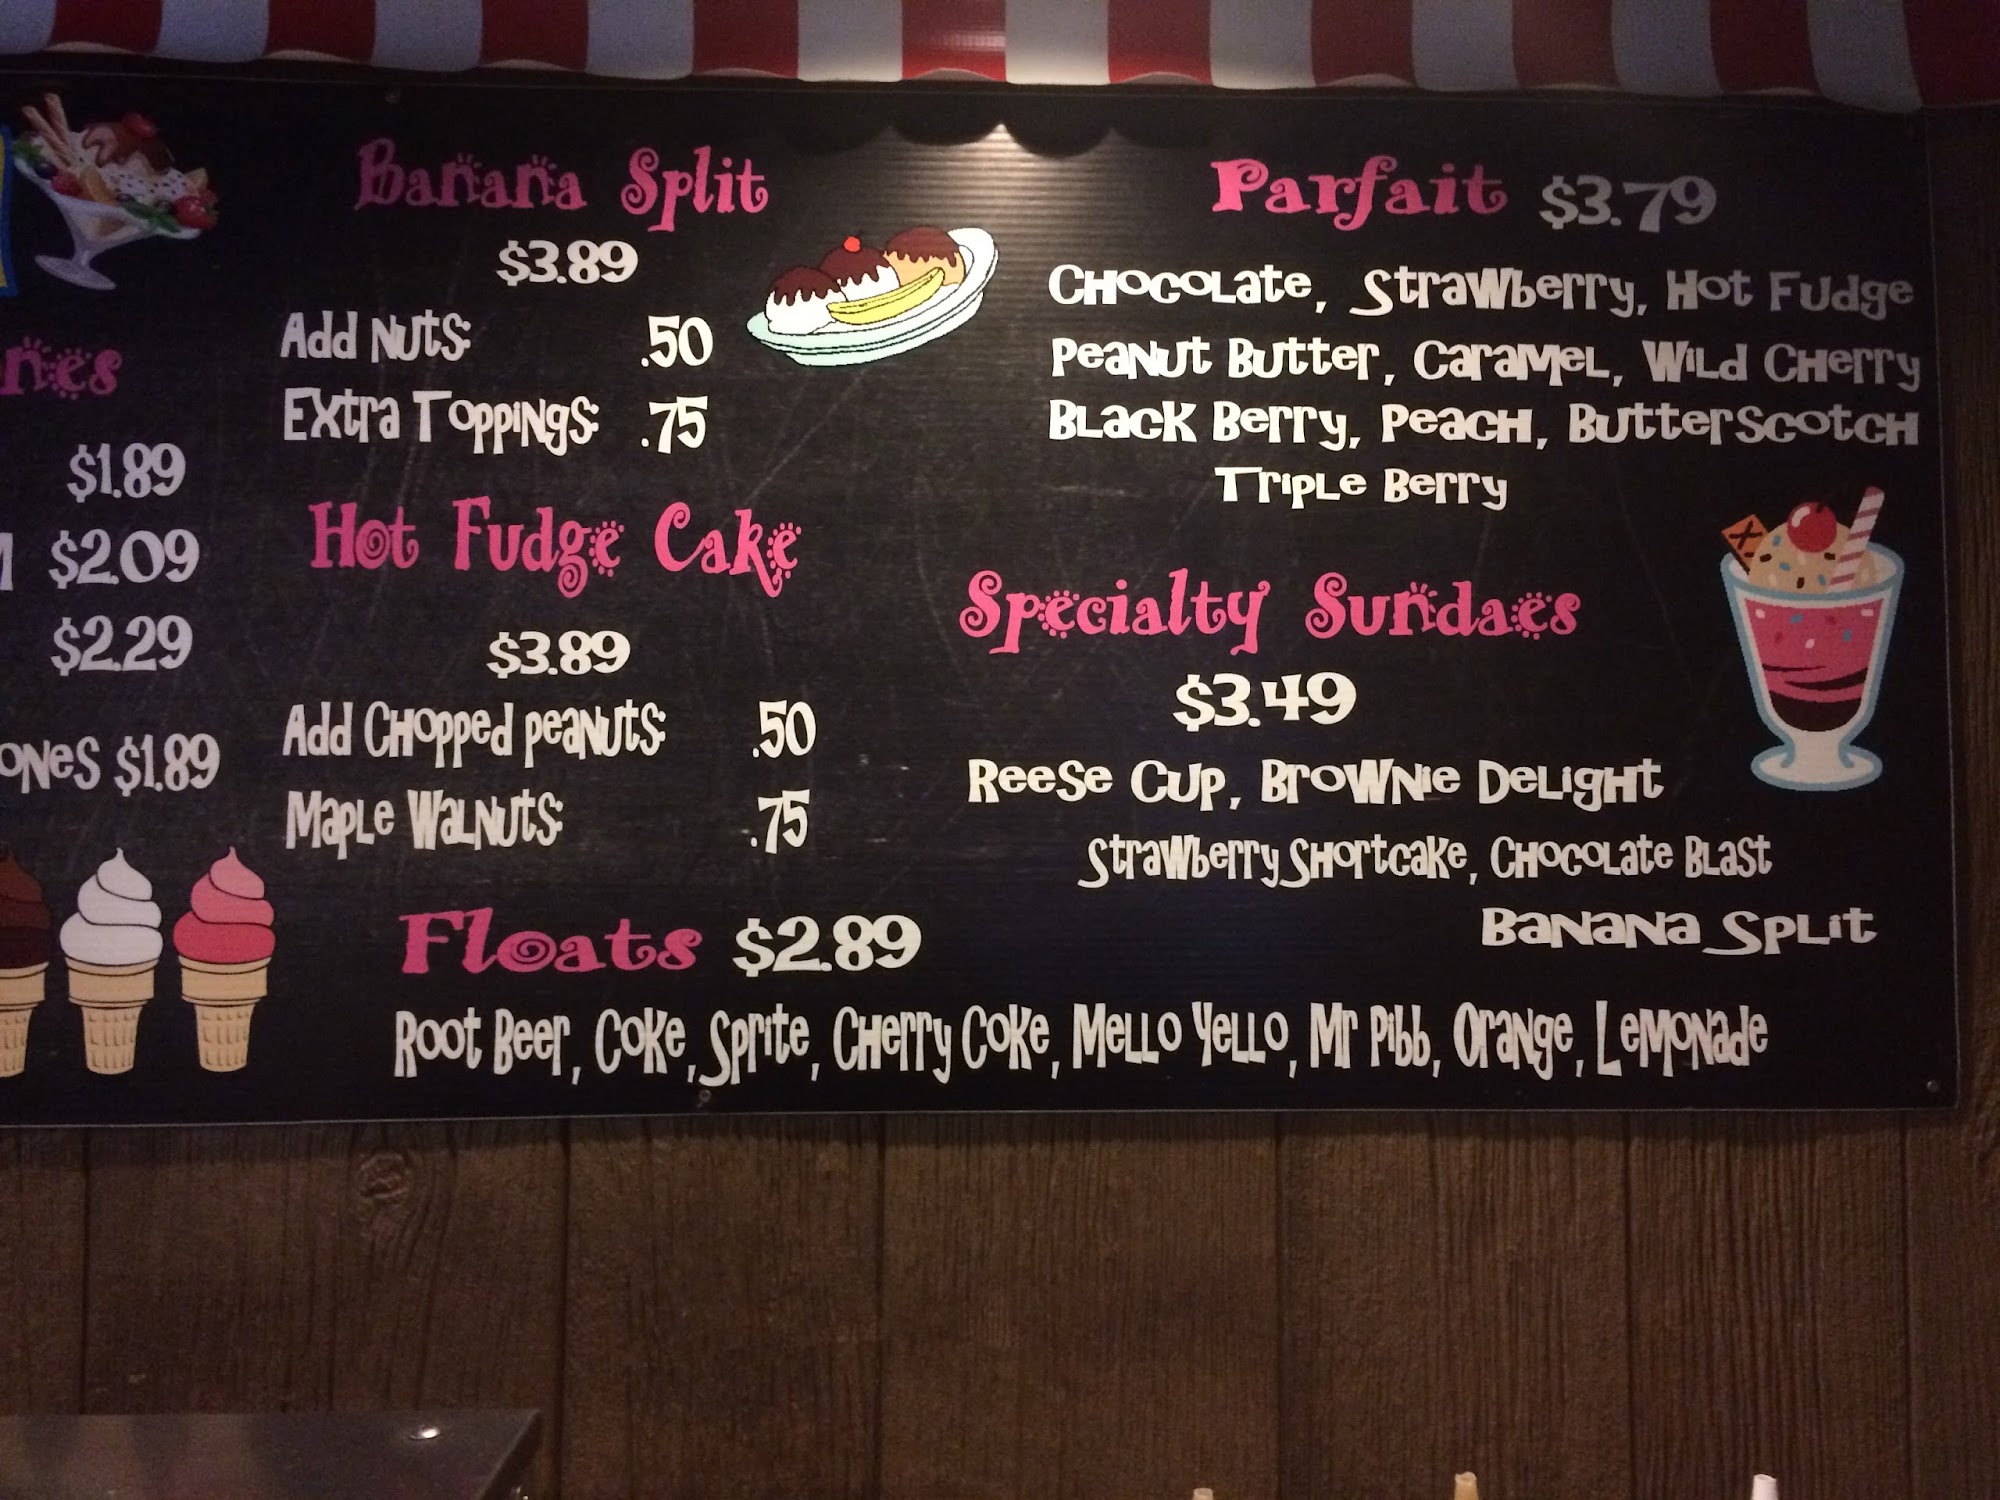 $1.89
$2.09
$2.29
$1.89
Banana Split
$3.89
Add Nuts: .50
Extra Toppings: .75
Hot Fudge Cake
$3.89
Add Chopped Peanuts: .50
Maple Walnuts: .75
Floats $2.89
Root Beer, Coke, Sprite, Cherry Coke, Mello Yello, Mr Pibb, Orange, Lemonade
Parfait $3.79
Chocolate, Strawberry, Hot Fudge
Peanut Butter, Caramel, Wild Cherry
Black Berry, Peach, Butterscotch
Triple Berry
Specialty Sundaes
$3.49
Reese Cup, Brownie Delight
Strawberry Shortcake, Chocolate Blast
Banana Split